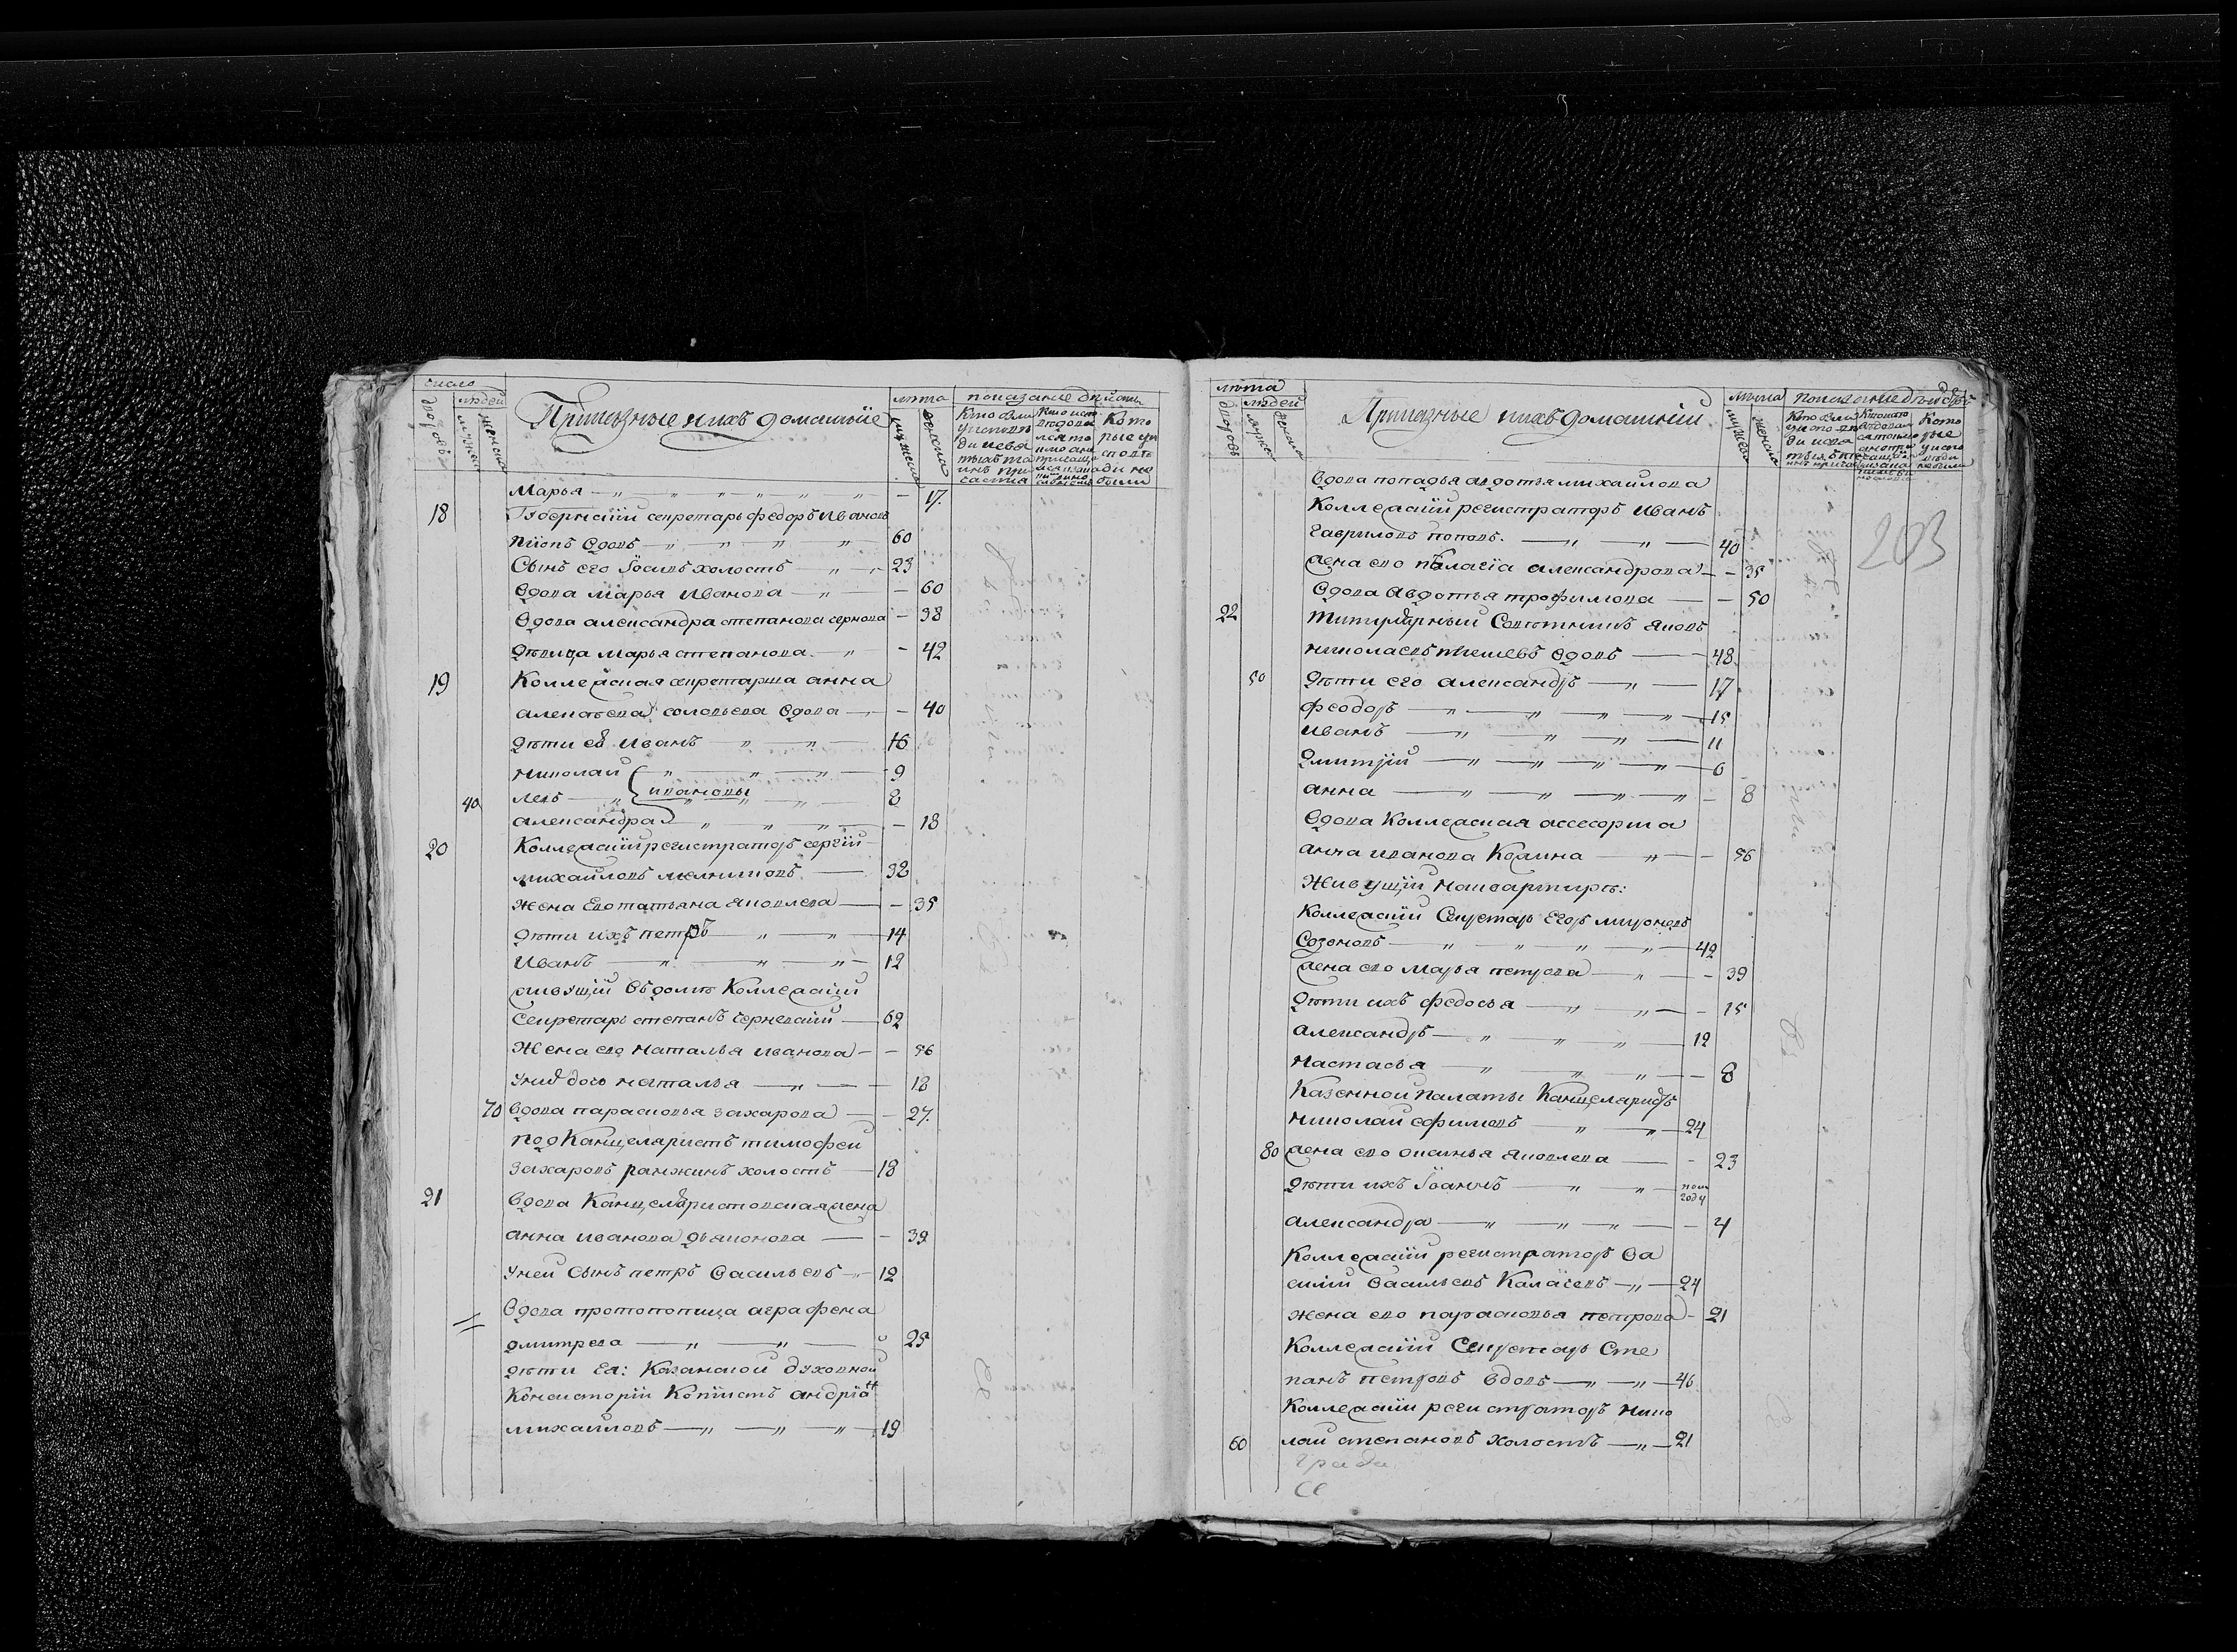 число
дворовъ
людей
мужеска
женска
Приказные и ихъ домашнїе
лѣта
мужеска
женска
показание дѣйства
Кто были
у исповѣ
ди и свя
тыхъ та
инъ при
частия
Кото
рые у и
сповѣ
ди не
были
Марья — „ „ — „ — „ „ „ — 17.
18 Губернскїй секретарь федоръ Ивановъ
вдовъ — „ — „ — „ — „ 60
Сынъ его Іосифъ холостъ — „ — 23
Вдова марья Иванова — „ — — 60
Вдова александра степанова — 38
дѣвица марья степанова. — „ — 42
19 Коллежская секретарша анна
алексѣева соловьева вдова — — 40
дѣти её Иванъ — „ — „ — 16
николай { „ — „ — „ — 9
40 левъ — „ { ивановы „ — 8
александра „ „ „ — — 18
20 Коллежскїй регистраторъ сергїй
михайловъ — 32
жена Его татьяна яковлева — — 35
дѣти ихъ петръ — „ — „ — 14
Иванъ — „ — „ — „ — 12
живущїй въ домѣ Коллежскїй
секретарь степанъ Черневскїй — 62
Жена его наталья иванова — — 56
у них дочь наталья — „ — — 18
70 вдова парасковья захарова — — 27.
подКанцеляристъ тимофей
захаровъ ранжинъ холостъ — 18
21 вдова Канцеляристовская жена
анна иванова дьяконова — — 39
у ней сынъ петръ васильевъ — „ — 12
Вдова протопопица аграфена
дмитрева — „ — „ — 25
дѣти Ея: Казанской духовной
Консисторїи Копїистъ андрїанъ
михайловъ — „ — „ — „ — 19
лѣта
дворовъ
людей
мужес
женска
Приказные и ихъ домашнїи
лѣта
мужеска
женска
Кто были
у исповѣ
ди и свя
Кото
рые
у испо
вѣди
не были
203
Вдова попадья авдотья михайлова
Коллежскїй регистраторъ Иванъ
Гавриловъ поповъ. — „ — „ — 40
жена его пелагїа александрова — — 35
вдова Авдотья трофимова — — 50
22 титулярный Советникъ яковъ
николаевъ вдовъ — 48
50 дѣти его александръ — „ — 17
феодоръ — „ — „ — „ — „ — 15
иванъ — „ — „ — „ — 11
дмитрїй — „ — „ — „ — „ — 6
анна — „ — „ — „ — „ — 8
Вдова Коллежская ассесорша
анна иванова Колина — „ — — 56
Живущїи на квартирѣ:
Коллежскїй Секретарь Егоръ мироновъ
Созоновъ — „ — „ — „ — „ — 42
жена его марья петрова — „ — — 39
дѣти ихъ федосья — „ — „ — — 15
александръ — „ — „ — „ — 12
настасья — „ — „ — „ — — 8
Казенной палаты Канцеляристъ
николай ефимовъ — „ — „ — 24
80 жена его аксинья яковлева — — 23
дѣти ихъ Іоаннъ — „ — „ — пол
году
александра — „ — „ — „ — — 4
Коллежскїй регистраторъ Ва
силїй Васильевъ Калачевъ — „ — 24
жена его парасковья петрова — 21
Коллежскїй Секретарь Сте
панъ Петровъ вдовъ — „ — „ — 46
Коллежскїй регистраторъ Нико
60 лай степановъ холостъ — „ — 21